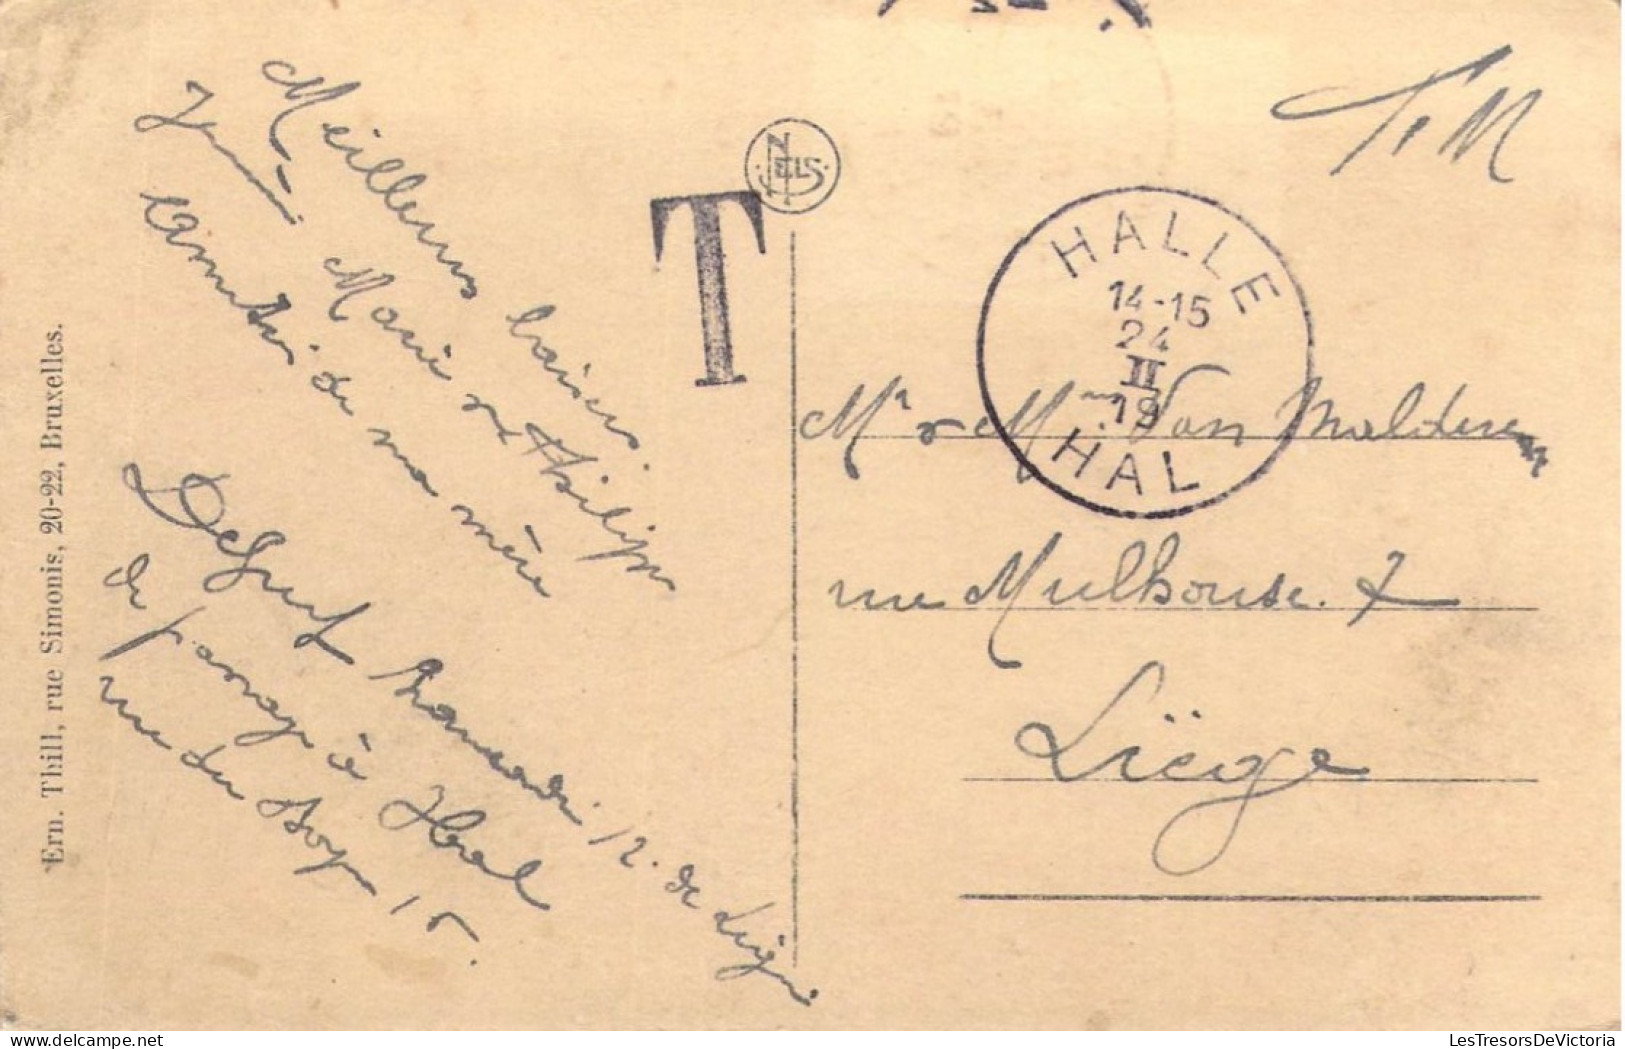 Meilleurs baisers
Marie et Philippe
de ma mère
de passage à Hal
rue du 15.
12.
Ern. Thill, rue Simonis, 20-22, Bruxelles.
NELS
T
HALLE
14-15
24
II
19
HAL
Mr & Mme Van Malderen
rue Mulhouse. 7
Liëge
LesTresorsDeVictoria.com